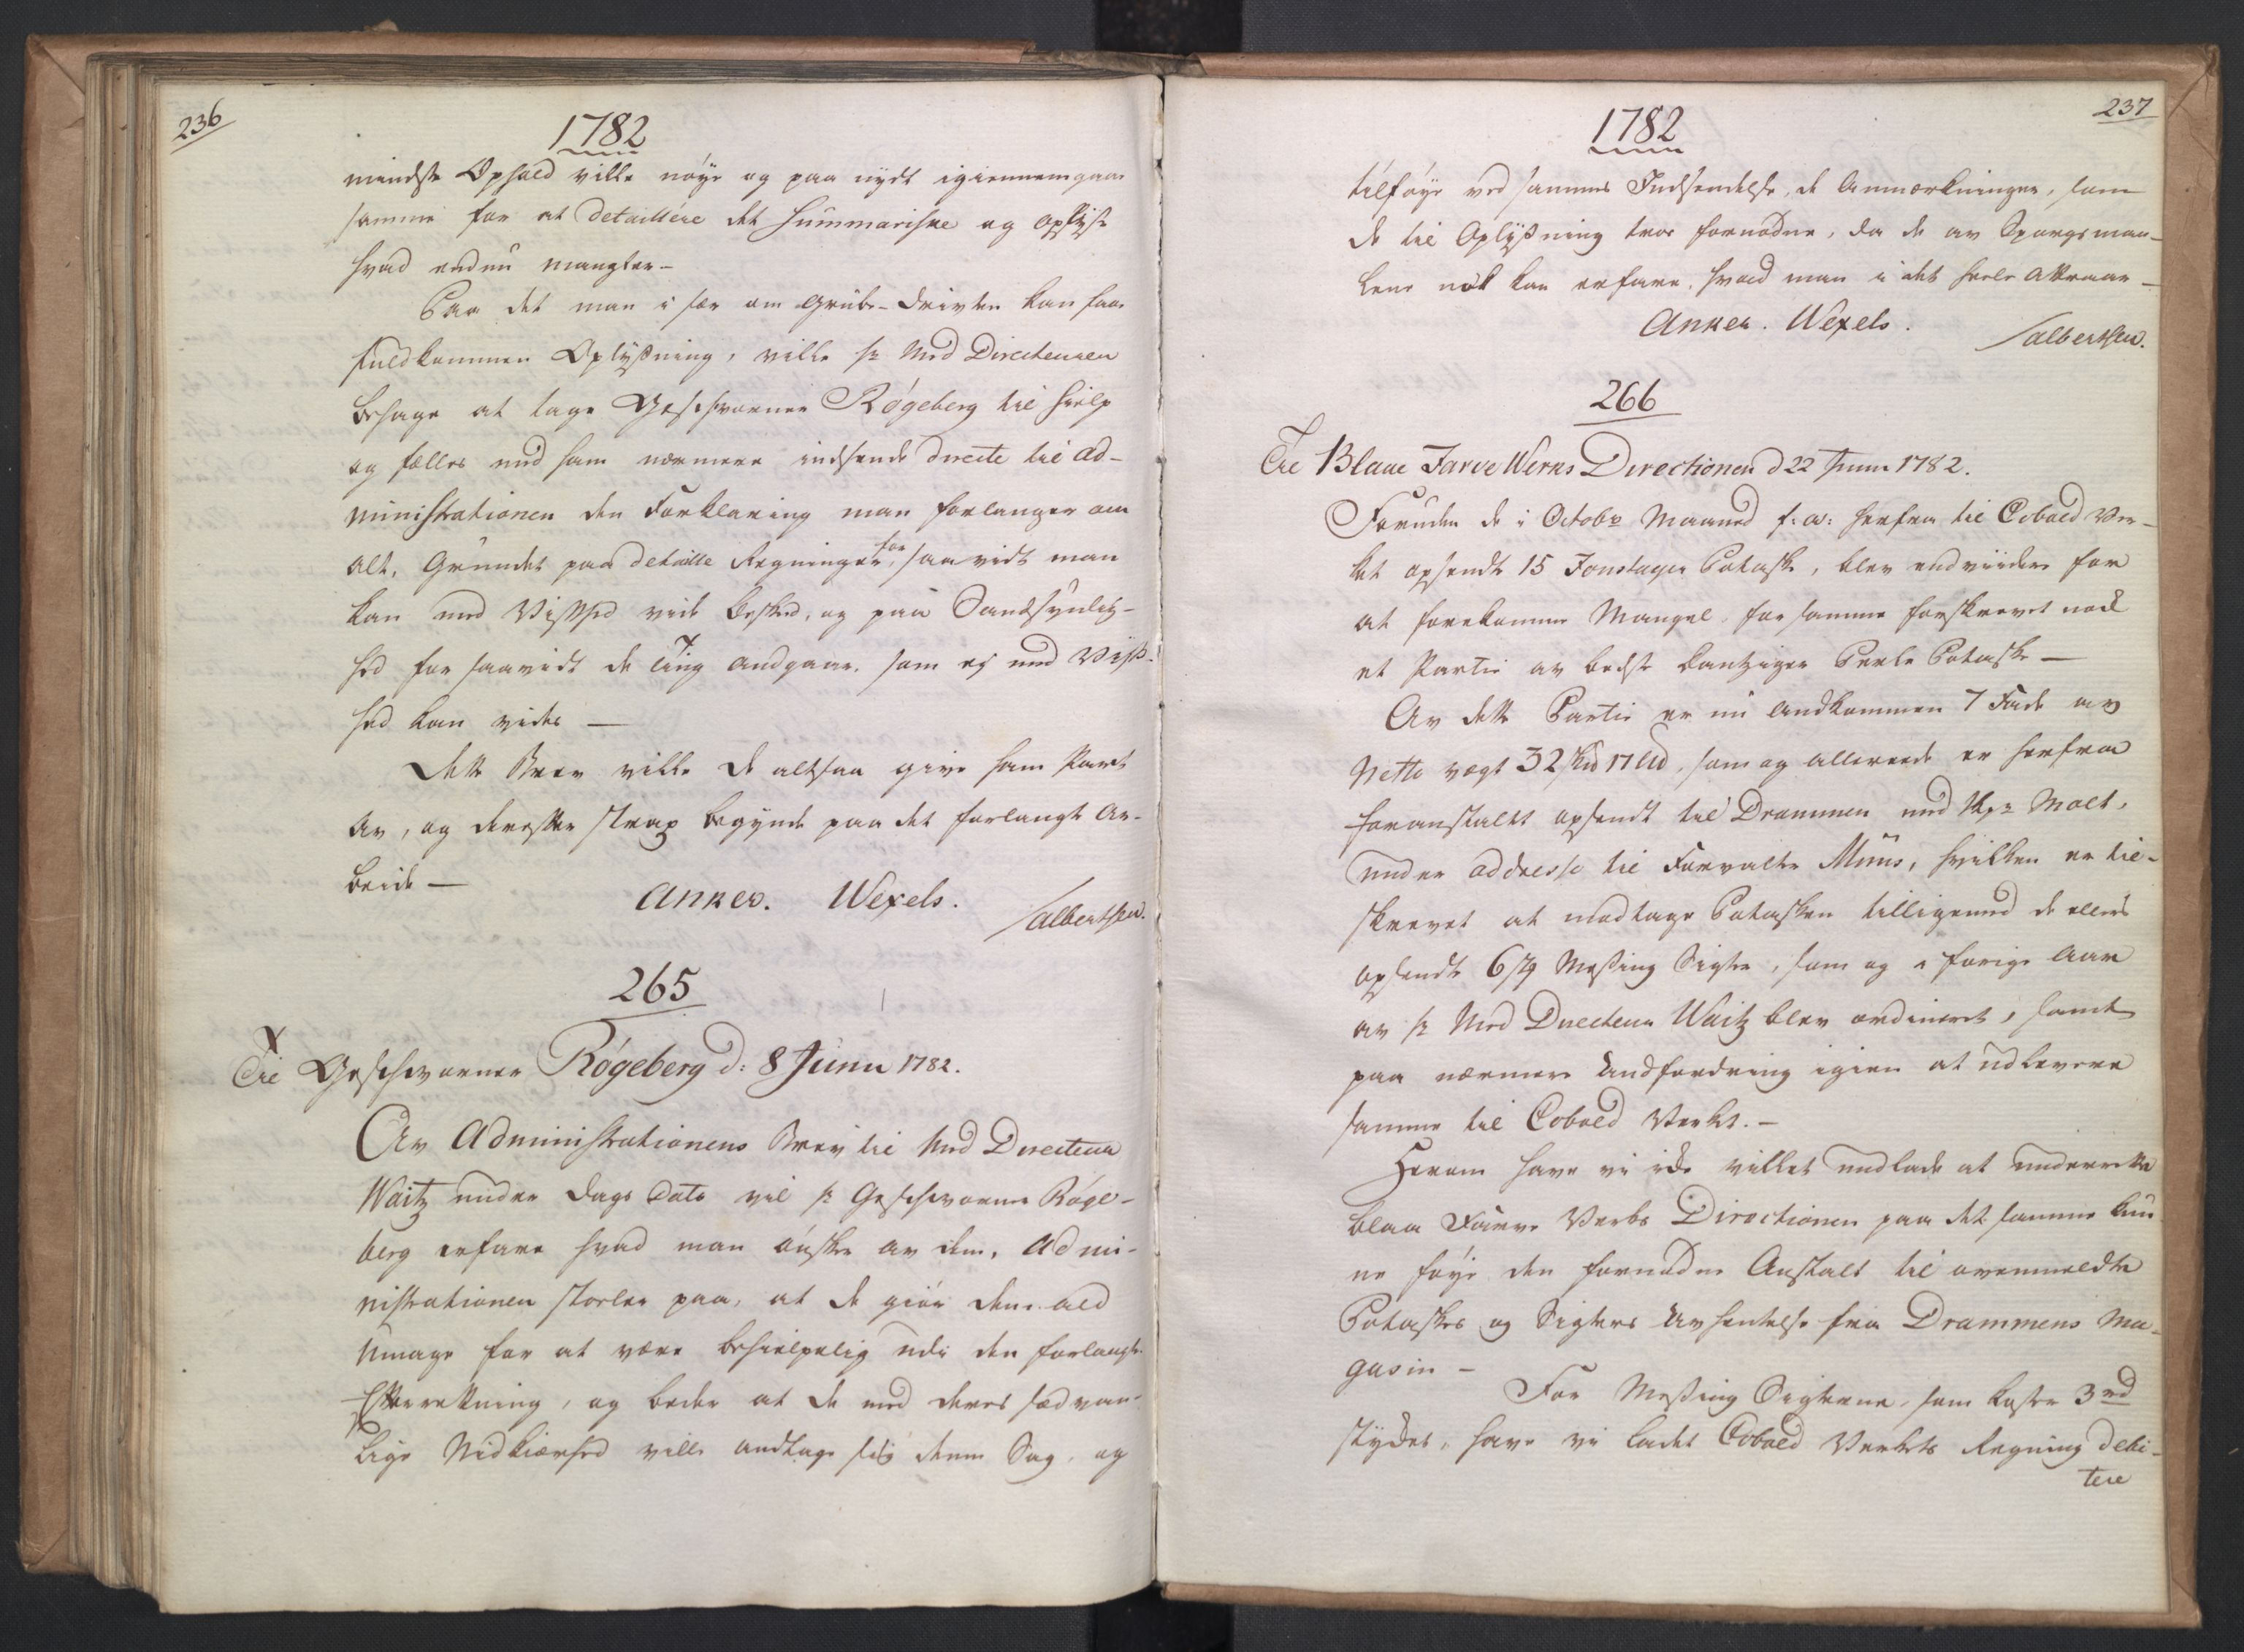 236
1782
mindste Ophold ville nøye og paa nydt igiennemgaae
samme for at detaillere det Summariske og oplyse
hvad endnu mangler -
Paa det man i sær om Grube-Driften kan faae
fuldkommen Oplysning, ville hr Med Directeuren
behage at tage Geschworner Røgeberg til Hielp
og fælles med ham nærmere indsende directe til Ad-
ministrationen den Forklaring man forlanger om
alt, Grundet paa detaille Regninger, for saavidt man
kan med Vished vide beskeed, og paa Sandsynlig-
hed for saavidt de Ting andgaar, som ej med Vis-
hed kan vides —
Dette Brev ville De altsaa give ham Part
av, og derefter strax begynde paa det forlangte Ar-
beide —
Anker. Wexels.
/Albertsen.
265
Til Geschworner Røgeberg d: 8 Junii 1782.
Av Administrationens Brev til Med Directeur
Waitz under Dags Dato vil hr Geschworne Røge-
berg erfare hvad man ønsker av dem, Admi-
nistrationen stoler paa, at De giør dem ald
Umage for at være behielpelig udi den forlangte
Efterretning, og beder at De med deres sædvan-
lige Nidkiærhed ville andtage sig denne Sag, og
237
1782
tilføye ved sammes Indsendelse, de Anmerkninger, som
de til Oplysning troe fornødne, da de av Spørgsmaa-
lene nok kan erfare, hvad man i det heele attraaer -
Anker. Wexels.
/Albertsen.
266
Til Blaae Farve Werks Directionen d 22 Junii 1782.
Foruden de i Octobr Maaned f: a: herfra til Cobold Ver-
ket opsendte 15 Fonstager Potaske, blev endviidere for
at forekomme Mangel, for samme forskrevet nok
et Partie av bedste Dantziger Perle Potaske —
Av dette Partie er nu andkommen 7 Fade av
Netto vegt 32 Skd 17 Ld, som og allereede er herfra
foranstaltet opsendt til Drammen med Skpr Molt,
under addresse til Forvalter Muus, hvilken er til-
skrevet at modtage Potasken tilligemed de ellers
opsendte 6 st Messing Sigter, som og i forige Aar
av hr Med Directeur Waitz blev ordineret, samt
paa nærmere Andfordring igien at udlevere
samme til Cobold Verket. —
Herom have vi icke villet undlade at underrette
blaa Farve Verks Directionen paa det samme kun-
ne føye den fornødne Anstalt til ovenmeldte
Potaskes og Sigters Avhentelse fra Drammens Ma-
gasin —
For Messing Sigterne, som koster 3 rd
stydet, have vi ladet Cobold Verkets Regning debi-
tere